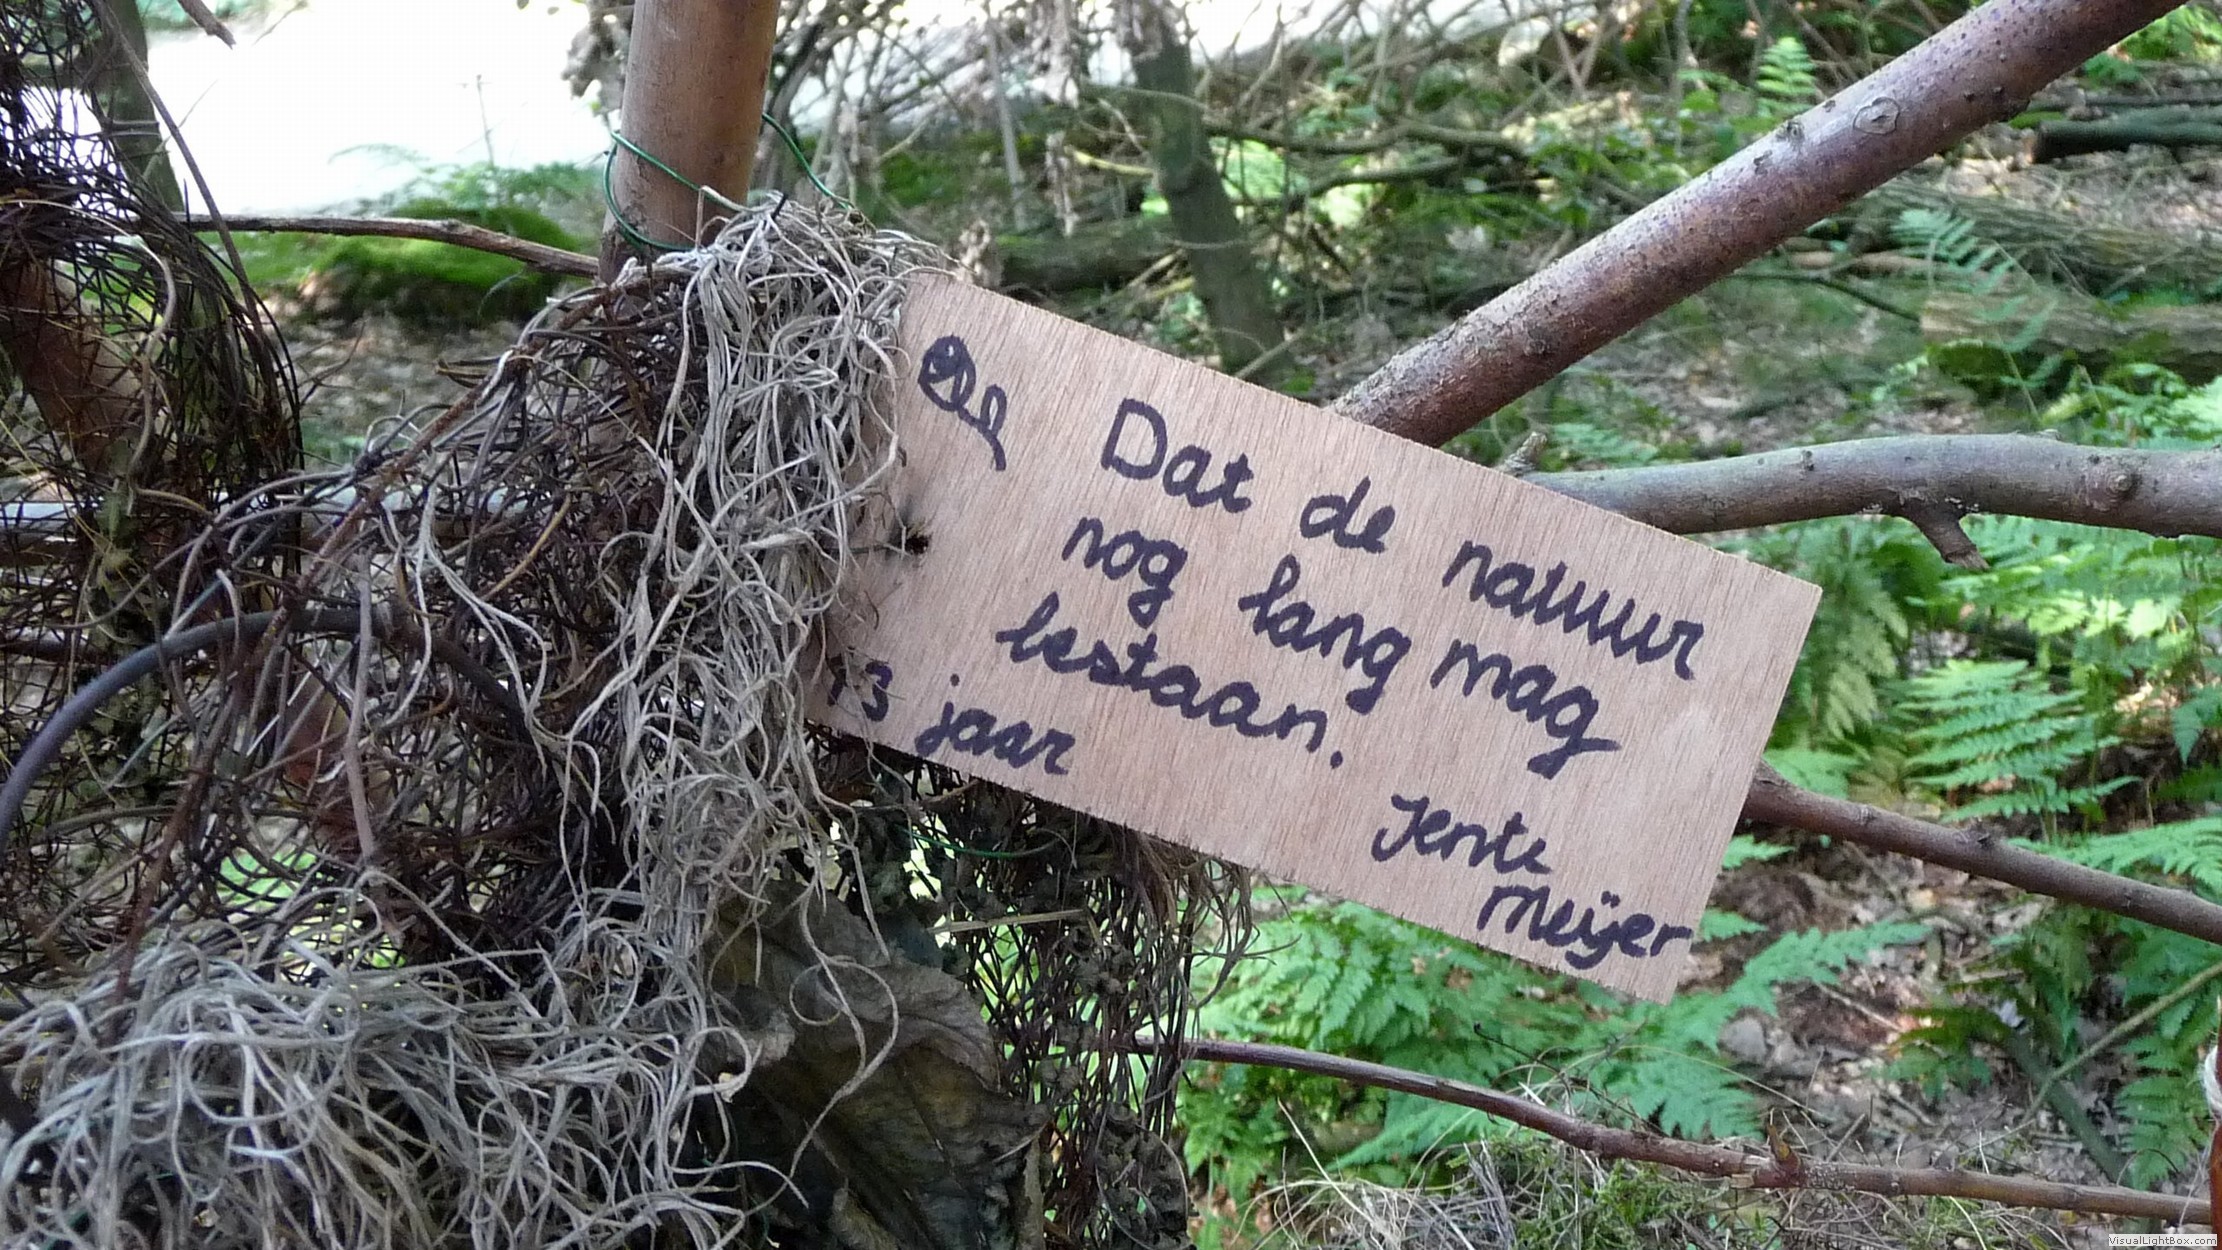 Dat de natuur
nog lang mag
bestaan.
13 jaar
Jente
Meijer
VisualLightBox.com